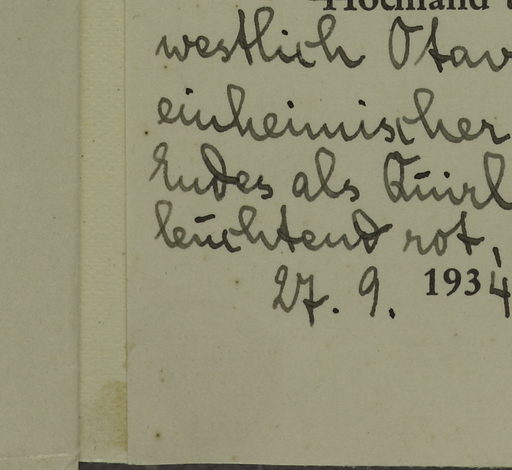 Hochland
westlich Otav
einheimischer
Endes als Quirl
leuchtend rot,
27. 9. 1934